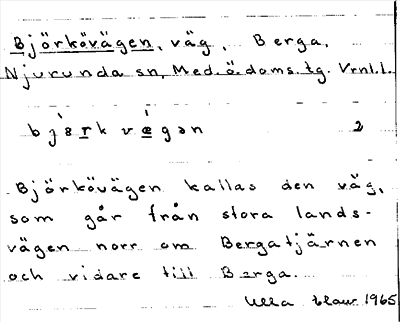 Björkövägen, väg, Berga,
Njurunda sn, Medödoms tg. Vrnl.l.
bjərk vegən 2
Björkövägen kallas den väg,
som går från stora lands-
vägen norr om Bergatjärnen
och vidare till Berga.
Ulla 1965